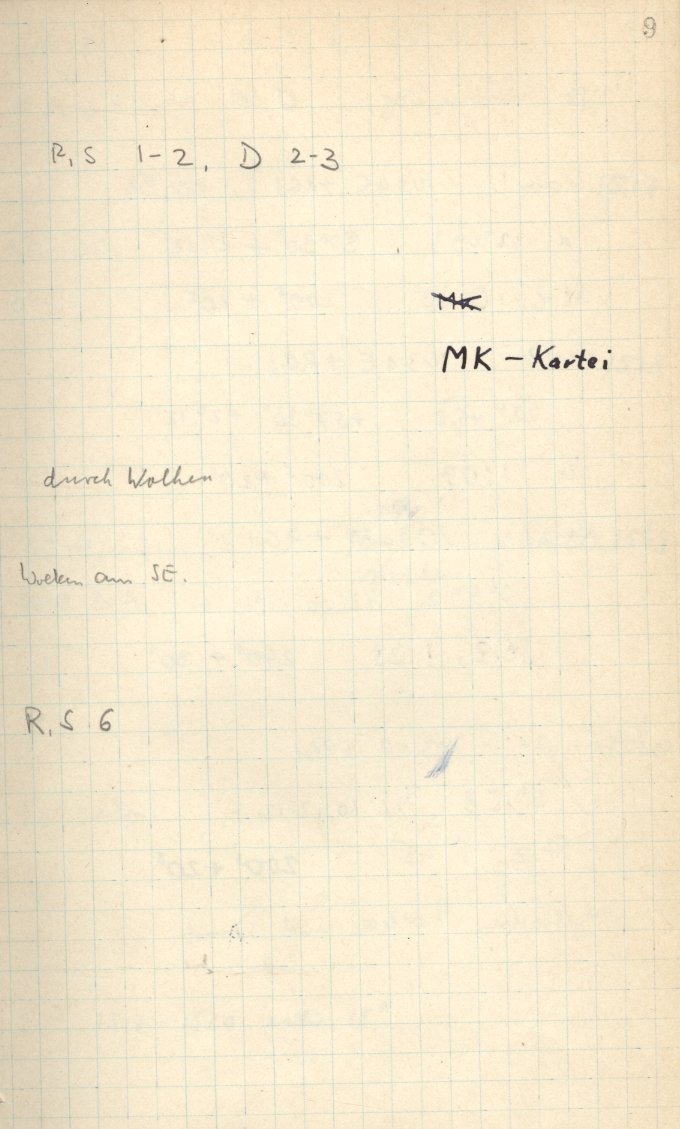 9
R, S 1-2, D 2-3
MK
MK - Kartei
durch Wolken
Wolken am SE.
R, S 6